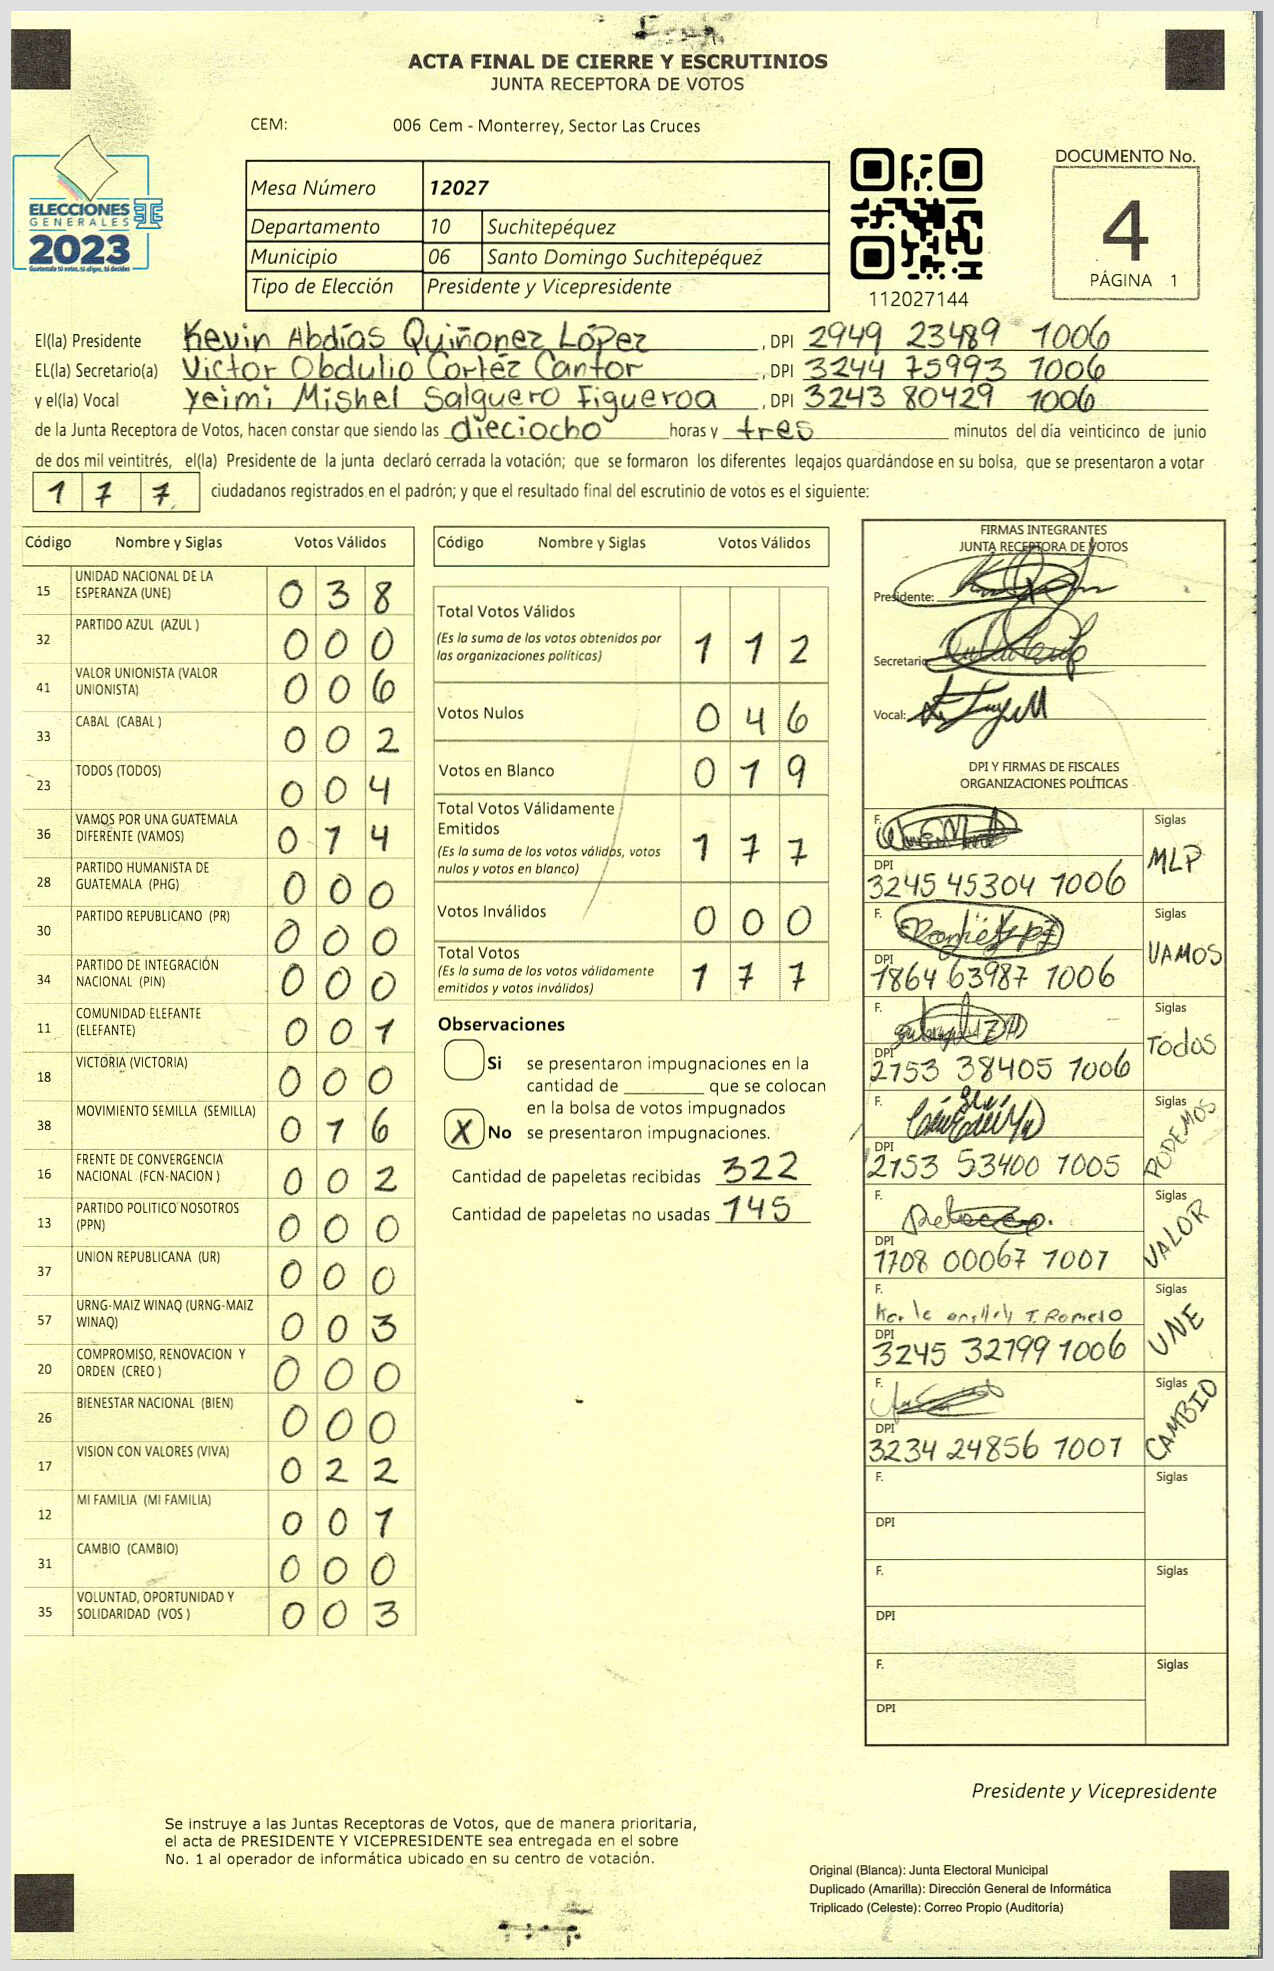 ACTA FINAL DE CIERRE Y ESCRUTINIOS
JUNTA RECEPTORA DE VOTOS
CEM: 006 Cem - Monterrey, Sector Las Cruces
ELECCIONES
GENERALES
2023
Guatemala tú votas, tú eliges, tú decides
Mesa Número 12027
Departamento 10 Suchitepéquez
Municipio 06 Santo Domingo Suchitepéquez
Tipo de Elección Presidente y Vicepresidente
112027144
DOCUMENTO No.
4
PÁGINA 1
El(la) Presidente Kevin Abdías Quiñonez López, DPI 2949 23489 1006
EL(la) Secretario(a) Victor Obdulio Cortéz Cantor, DPI 3244 75993 1006
y el(la) Vocal Yeimi Mishel Salguero Figueroa, DPI 3243 80429 1006
de la Junta Receptora de Votos, hacen constar que siendo las dieciocho horas y tres minutos del día veinticinco de junio
de dos mil veintitrés, el(la) Presidente de la junta declaró cerrada la votación; que se formaron los diferentes legajos guardándose en su bolsa, que se presentaron a votar
1 7 7 ciudadanos registrados en el padrón; y que el resultado final del escrutinio de votos es el siguiente:
Código Nombre y Siglas Votos Válidos
15 UNIDAD NACIONAL DE LA ESPERANZA (UNE) 0 3 8
32 PARTIDO AZUL (AZUL ) 0 0 0
41 VALOR UNIONISTA (VALOR UNIONISTA) 0 0 6
33 CABAL (CABAL ) 0 0 2
23 TODOS (TODOS) 0 0 4
36 VAMOS POR UNA GUATEMALA DIFERENTE (VAMOS) 0 1 4
28 PARTIDO HUMANISTA DE GUATEMALA (PHG) 0 0 0
30 PARTIDO REPUBLICANO (PR) 0 0 0
34 PARTIDO DE INTEGRACIÓN NACIONAL (PIN) 0 0 0
11 COMUNIDAD ELEFANTE (ELEFANTE) 0 0 1
18 VICTORIA (VICTORIA) 0 0 0
38 MOVIMIENTO SEMILLA (SEMILLA) 0 1 6
16 FRENTE DE CONVERGENCIA NACIONAL (FCN-NACION ) 0 0 2
13 PARTIDO POLITICO NOSOTROS (PPN) 0 0 0
37 UNION REPUBLICANA (UR) 0 0 0
57 URNG-MAIZ WINAQ (URNG-MAIZ WINAQ) 0 0 3
20 COMPROMISO, RENOVACION Y ORDEN (CREO ) 0 0 0
26 BIENESTAR NACIONAL (BIEN) 0 0 0
17 VISION CON VALORES (VIVA) 0 2 2
12 MI FAMILIA (MI FAMILIA) 0 0 1
31 CAMBIO (CAMBIO) 0 0 0
35 VOLUNTAD, OPORTUNIDAD Y SOLIDARIDAD (VOS ) 0 0 3
Código Nombre y Siglas Votos Válidos
Total Votos Válidos
(Es la suma de los votos obtenidos por
las organizaciones políticas) 1 1 2
Votos Nulos 0 4 6
Votos en Blanco 0 1 9
Total Votos Válidamente
Emitidos
(Es la suma de los votos válidos, votos
nulos y votos en blanco) 1 7 7
Votos Inválidos 0 0 0
Total Votos
(Es la suma de los votos válidamente
emitidos y votos inválidos) 1 7 7
Observaciones
Si se presentaron impugnaciones en la
cantidad de ________ que se colocan
en la bolsa de votos impugnados
X No se presentaron impugnaciones.
Cantidad de papeletas recibidas 322
Cantidad de papeletas no usadas 145
FIRMAS INTEGRANTES
JUNTA RECEPTORA DE VOTOS
Presidente:
Secretario
Vocal:
DPI Y FIRMAS DE FISCALES
ORGANIZACIONES POLÍTICAS
F. Siglas MLP
DPI 3245 45304 1006
F. Siglas VAMOS
DPI 1864 63987 1006
F. Siglas Todos
DPI 2153 38405 1006
F. Siglas PODEMOS
DPI 2153 53400 1005
F. Siglas VALOR
DPI 1708 00067 1007
F. T. Romero Siglas UNE
DPI 3245 32799 1006
F. Siglas CAMBIO
DPI 3234 24856 1007
F. Siglas
DPI
F. Siglas
DPI
F. Siglas
DPI
Presidente y Vicepresidente
Se instruye a las Juntas Receptoras de Votos, que de manera prioritaria,
el acta de PRESIDENTE Y VICEPRESIDENTE sea entregada en el sobre
No. 1 al operador de informática ubicado en su centro de votación.
Original (Blanca): Junta Electoral Municipal
Duplicado (Amarilla): Dirección General de Informática
Triplicado (Celeste): Correo Propio (Auditoría)